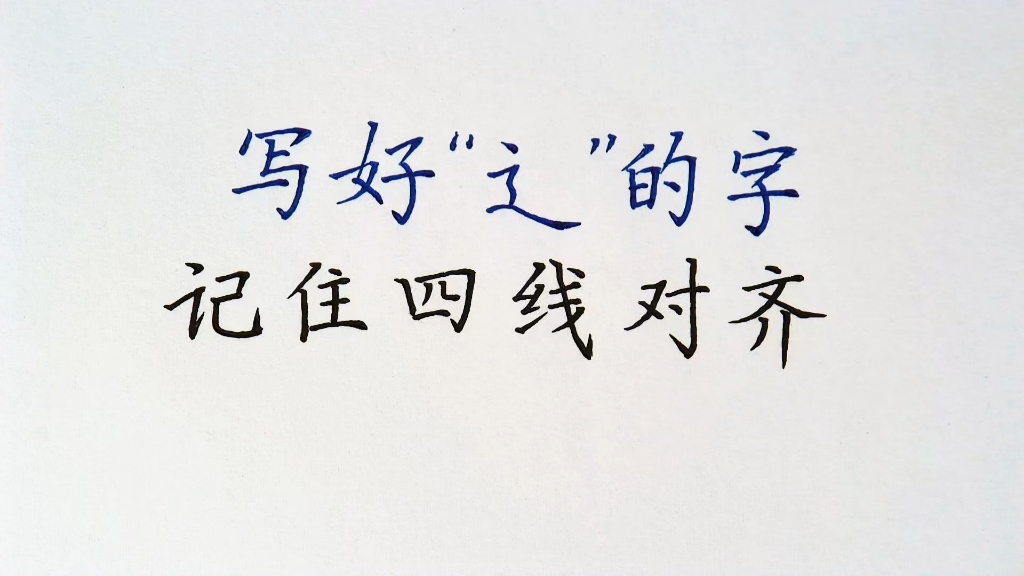 写好“辶”的字
记住四线对齐